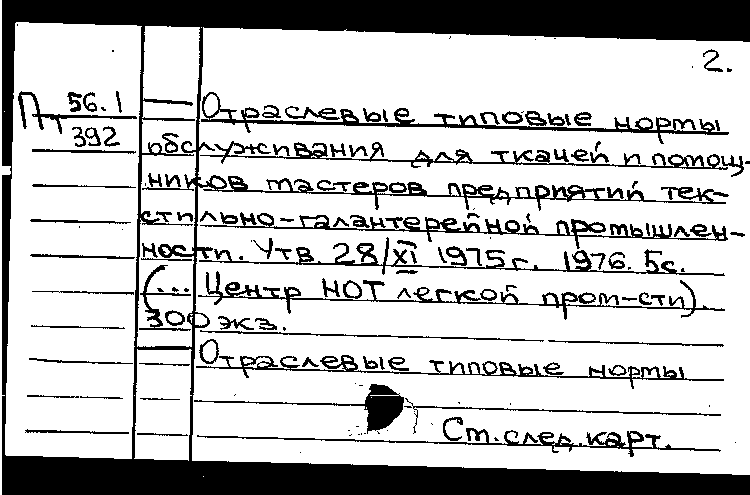 2.
Пт 56.1
392
— Отраслевые типовые нормы
обслуживания для ткачей и помощ-
ников мастеров предприятий тек-
стильно-галантерейной промышлен-
ности. Утв. 28/XI 1975г. 1976. 5с.
(... Центр НОТ легкой пром-сти).
300 экз.
— Отраслевые типовые нормы
См. след. карт.